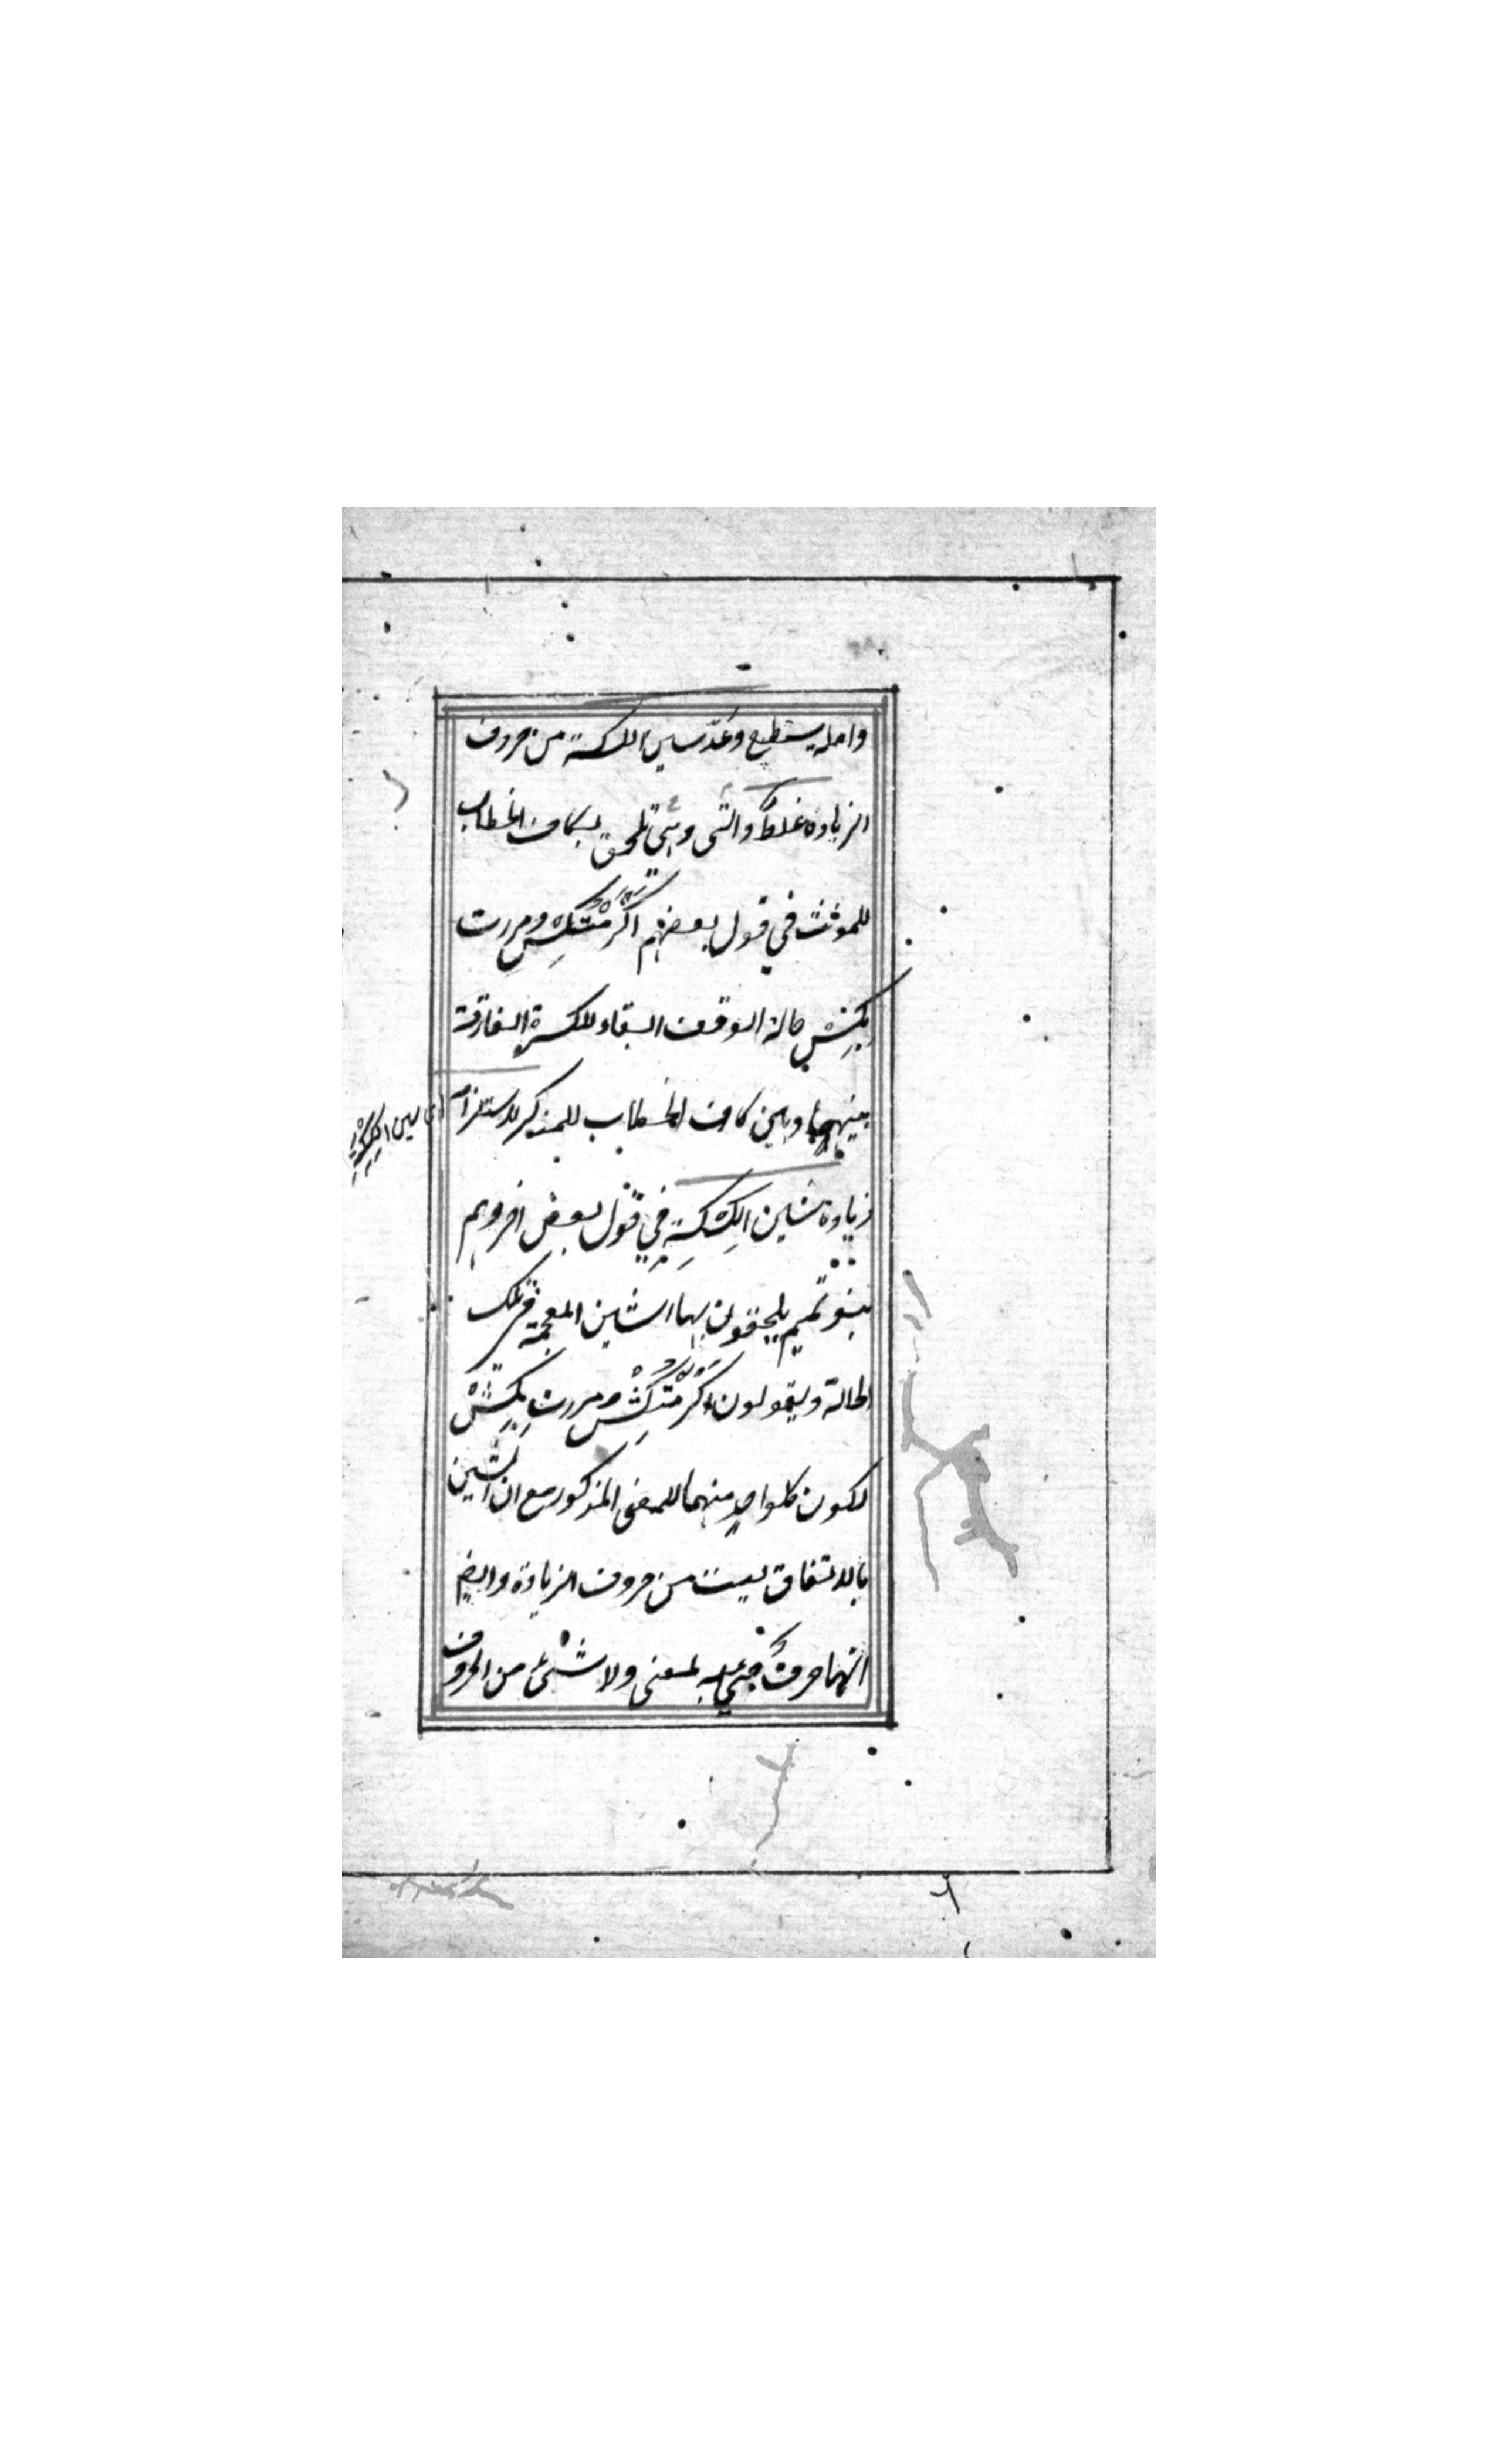 واصله يستطيع وعُدّ سين الكسكسة من حروف
الزيادة غلطٌ والتى وهى تلحق بكاف الخطاب
للمونث في قول بعضهم اكْرَمْتُكِسْ ومررت
بِكِسْ حالة الوقف ابقاء للكسرة الفارقة
بينهما وبين كاف الخطاب للمذكر لاستلزامه
اى سين الكسكسة
زيادة شين الكِشْكِشة في قول بعض اخر وهم
بنو تميم يلحقون بها الشين المعجمة فى تلك
الحالة ويقولون اكْرَمْتُكِشْ ومررت بِكِشْ
لكون كل واحدٍ منهما للمعنى المذكور مع ان الشين
بالاتفاق ليست من حروف الزيادة وايضا
انهما حرفٌ جىء به لمعنى ولا شْىء من الحروف